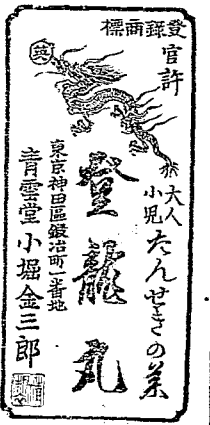 登錄商標
官許
英
大人
小児
たんせきの薬
登龍丸
東京神田區鍛冶町一番地
青雲堂小堀金三郎